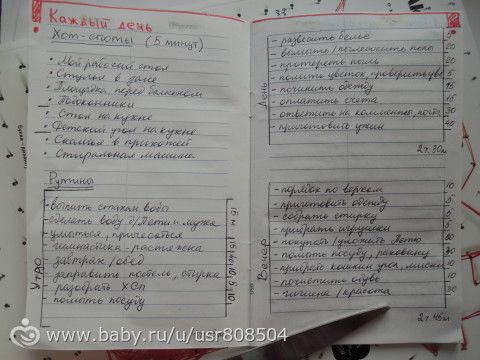 Каждый день
Хот-споты (5 минут)
• Мой рабочий стол
• Стулья в зале
• Площадка перед балконом
• Подоконники
• Стол на кухне
• Детский угол на кухне
• Скамья в прихожей
• Стиральная машина
Рутины
Утро
- выпить стакан воды
- сделать воду д/Пети и мужа
- умыться, причесаться
- гимнастика - растяжка
- завтрак /обед
- заправить постель, стирка
- разобрать ХСП
- помыть посуду
15 м
15
40
10
5
10
День
- развесить белье 5
- вымыть /пылесосить полы 20
- протереть пыль 20
- полить цветок, проверить 5
- починить одежду 15
- оплатить счета 15
- ответить на комменты, почта 30
- приготовить ужин 40
2ч. 30м
Вечер
- порядок по верхам 10
- приготовить одежду 5
- собрать стирку 5
- прибрать игрушки 5
- покупать /уложить Петю
- помыть посуду, раковину
- прибрать кошкин угол, миски 10
- почистить обувь
- гигиена /красота 30
2ч. 45м
www.baby.ru/u/usr808504